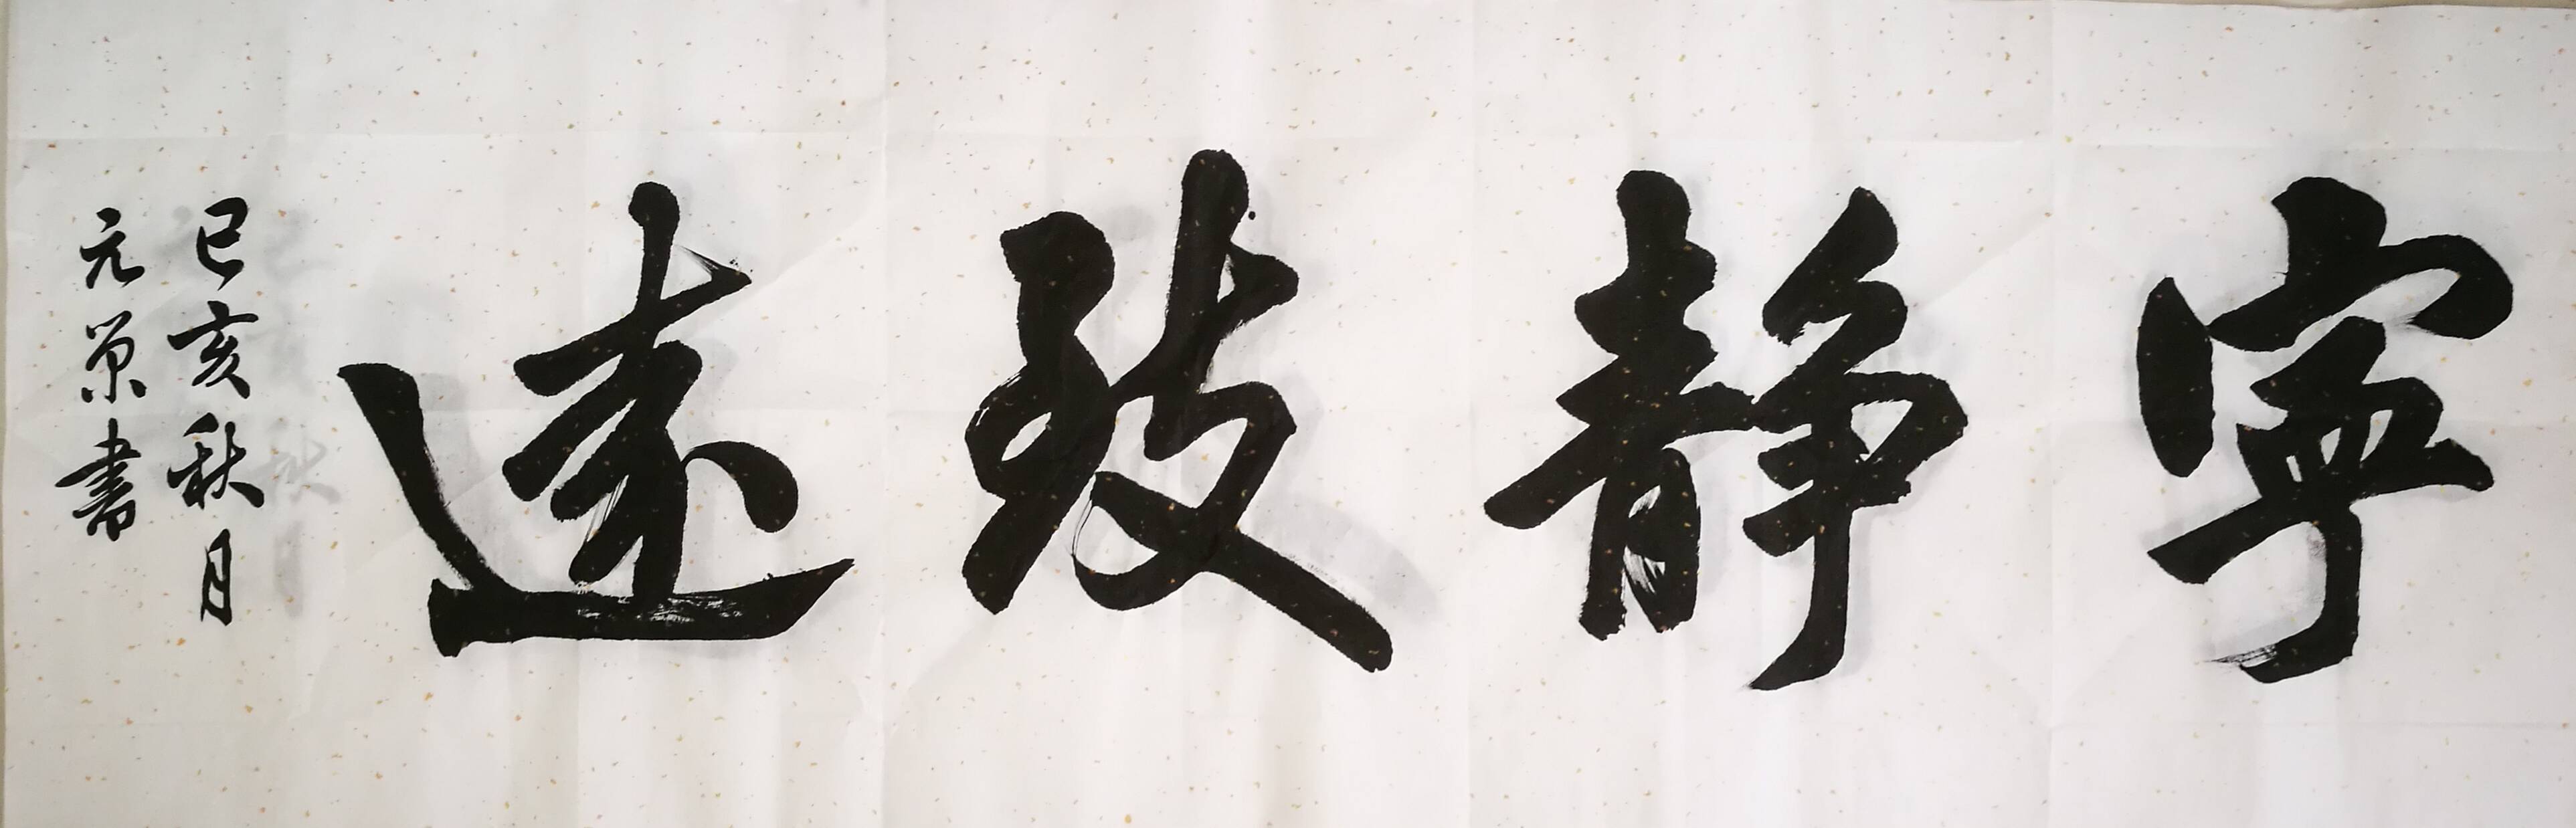 寧靜致遠
己亥秋月
元榮書